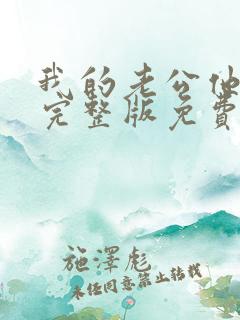 我的老公他
完整版免费
施澤彪
未经同意禁止转载